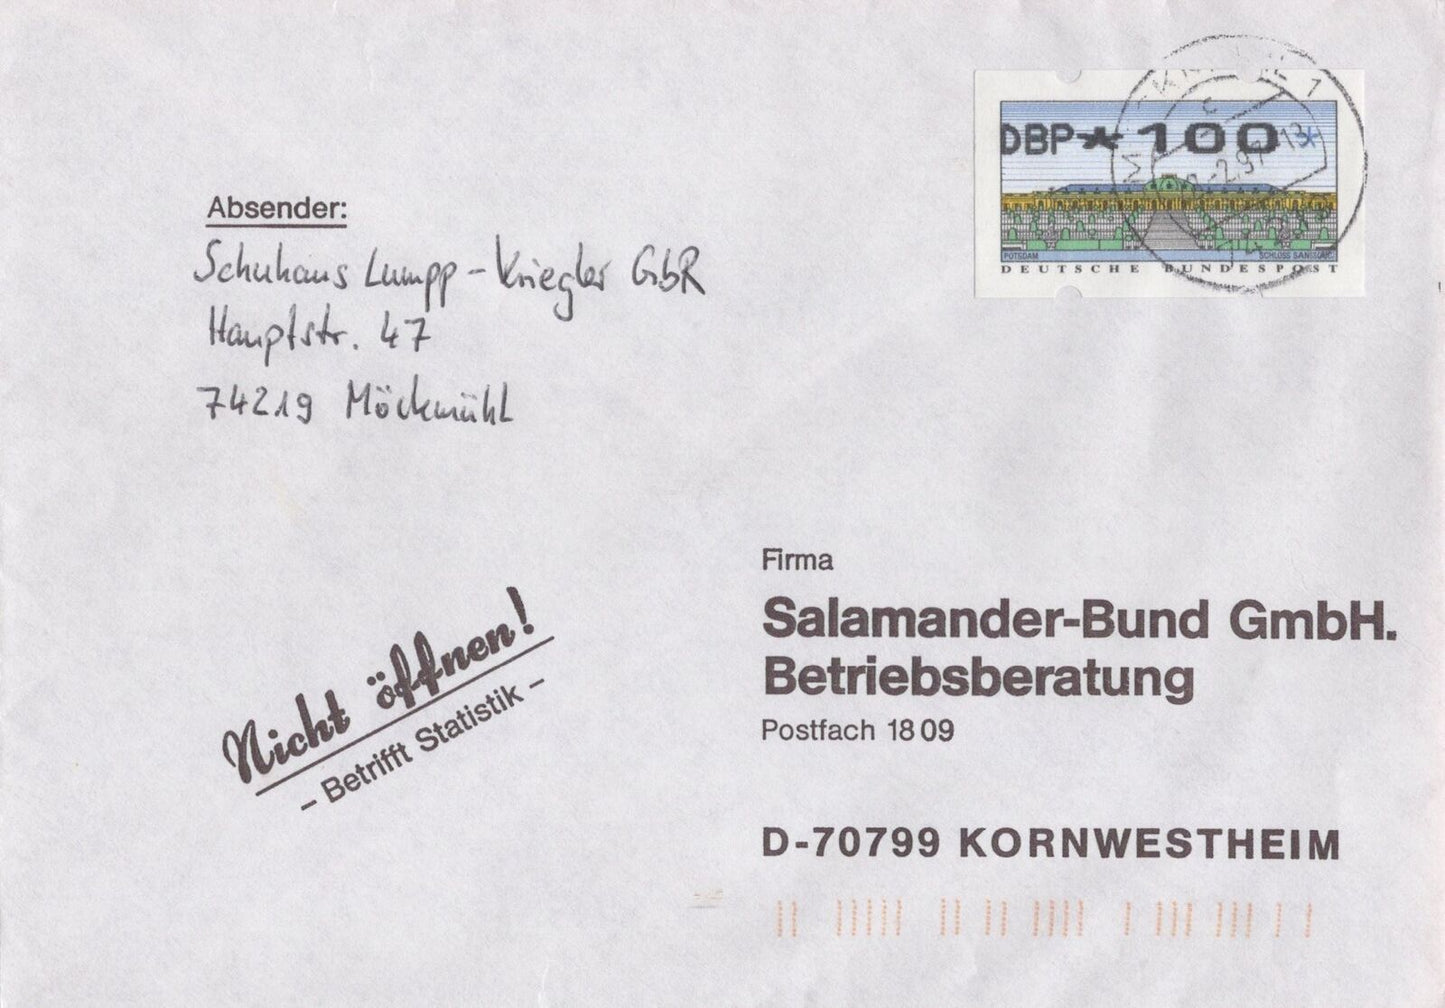 DBP*100
POTSDAM
SCHLOSS SANSSOUCI
DEUTSCHE BUNDESPOST
1
c
-2.97-13
74219
Absender:
Schuhaus Lumpp-Kriegler GbR
Hauptstr. 47
74219 Möckmühl
Firma
Salamander-Bund GmbH.
Betriebsberatung
Postfach 18 09
Nicht öffnen!
- Betrifft Statistik -
D-70799 KORNWESTHEIM